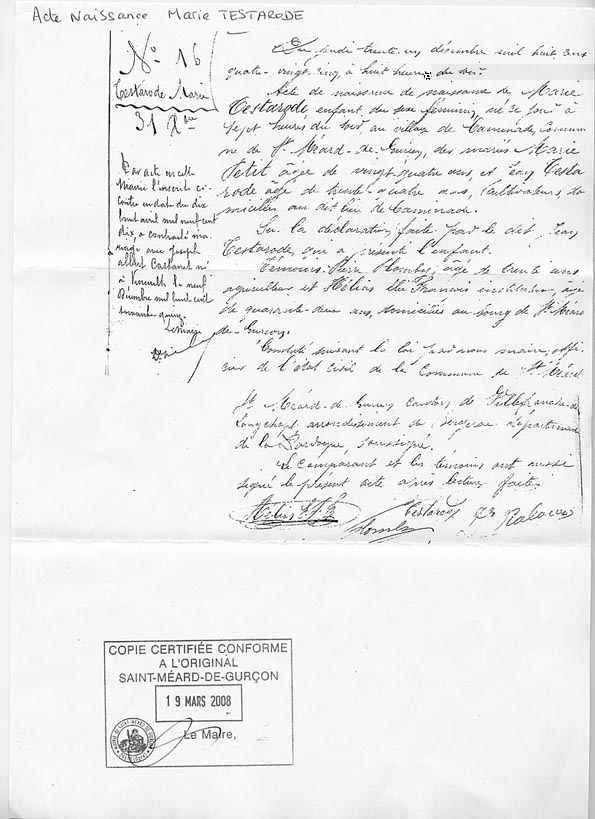 Acte Naissance Marie TESTARODE
N° 16
Testarode Marie
31 Xbre
Par acte en cette
Mairie l'inscrite ci-
contre en date du dix
huit avril mil neuf cent
dix, a contracté ma-
riage avec Joseph
Albert Castanet né
à le neuf
Décembre mil huit cent
soixante
Le Maire
L'an jeudi trente un décembre mil huit cent
quatre-vingt-cinq, à huit heures du soir.
Acte de naissance de naissance de Marie
Testarode, enfant du sexe féminin, né ce jour à
sept heures du soir, au village de Caminade, Commu-
ne de St Méard-de-Gurçon, des mariés Marie
Petit âgée de vingt-quatre ans, et Jean Testa
rode âgé de trente-quatre ans, cultivateurs, do
miciliés au dit lieu de Caminade.
Sur la déclaration faite par le dit Jean
Testarode, qui a présenté l'enfant.
Témoins: Pierre âgé de trente ans
agriculteur et Hélias Elie François instituteur, âgé
de quarante-deux ans, domiciliés au bourg de St Méard
de-Gurçon.
Constaté suivant la loi par nous maire, offi-
cier de l'état civil de la Commune de St Méard
St Méard-de-Gurçon canton de Villefranche-de
Longchapt, arrondissement de Bergerac département
de la Dordogne, soussigné.
Le comparant et les témoins ont aussi
signé le présent acte après lecture faite.
Hélias Testarode
COPIE CERTIFIÉE CONFORME
A L'ORIGINAL
SAINT-MÉARD-DE-GURÇON
19 MARS 2008
Le Maire,